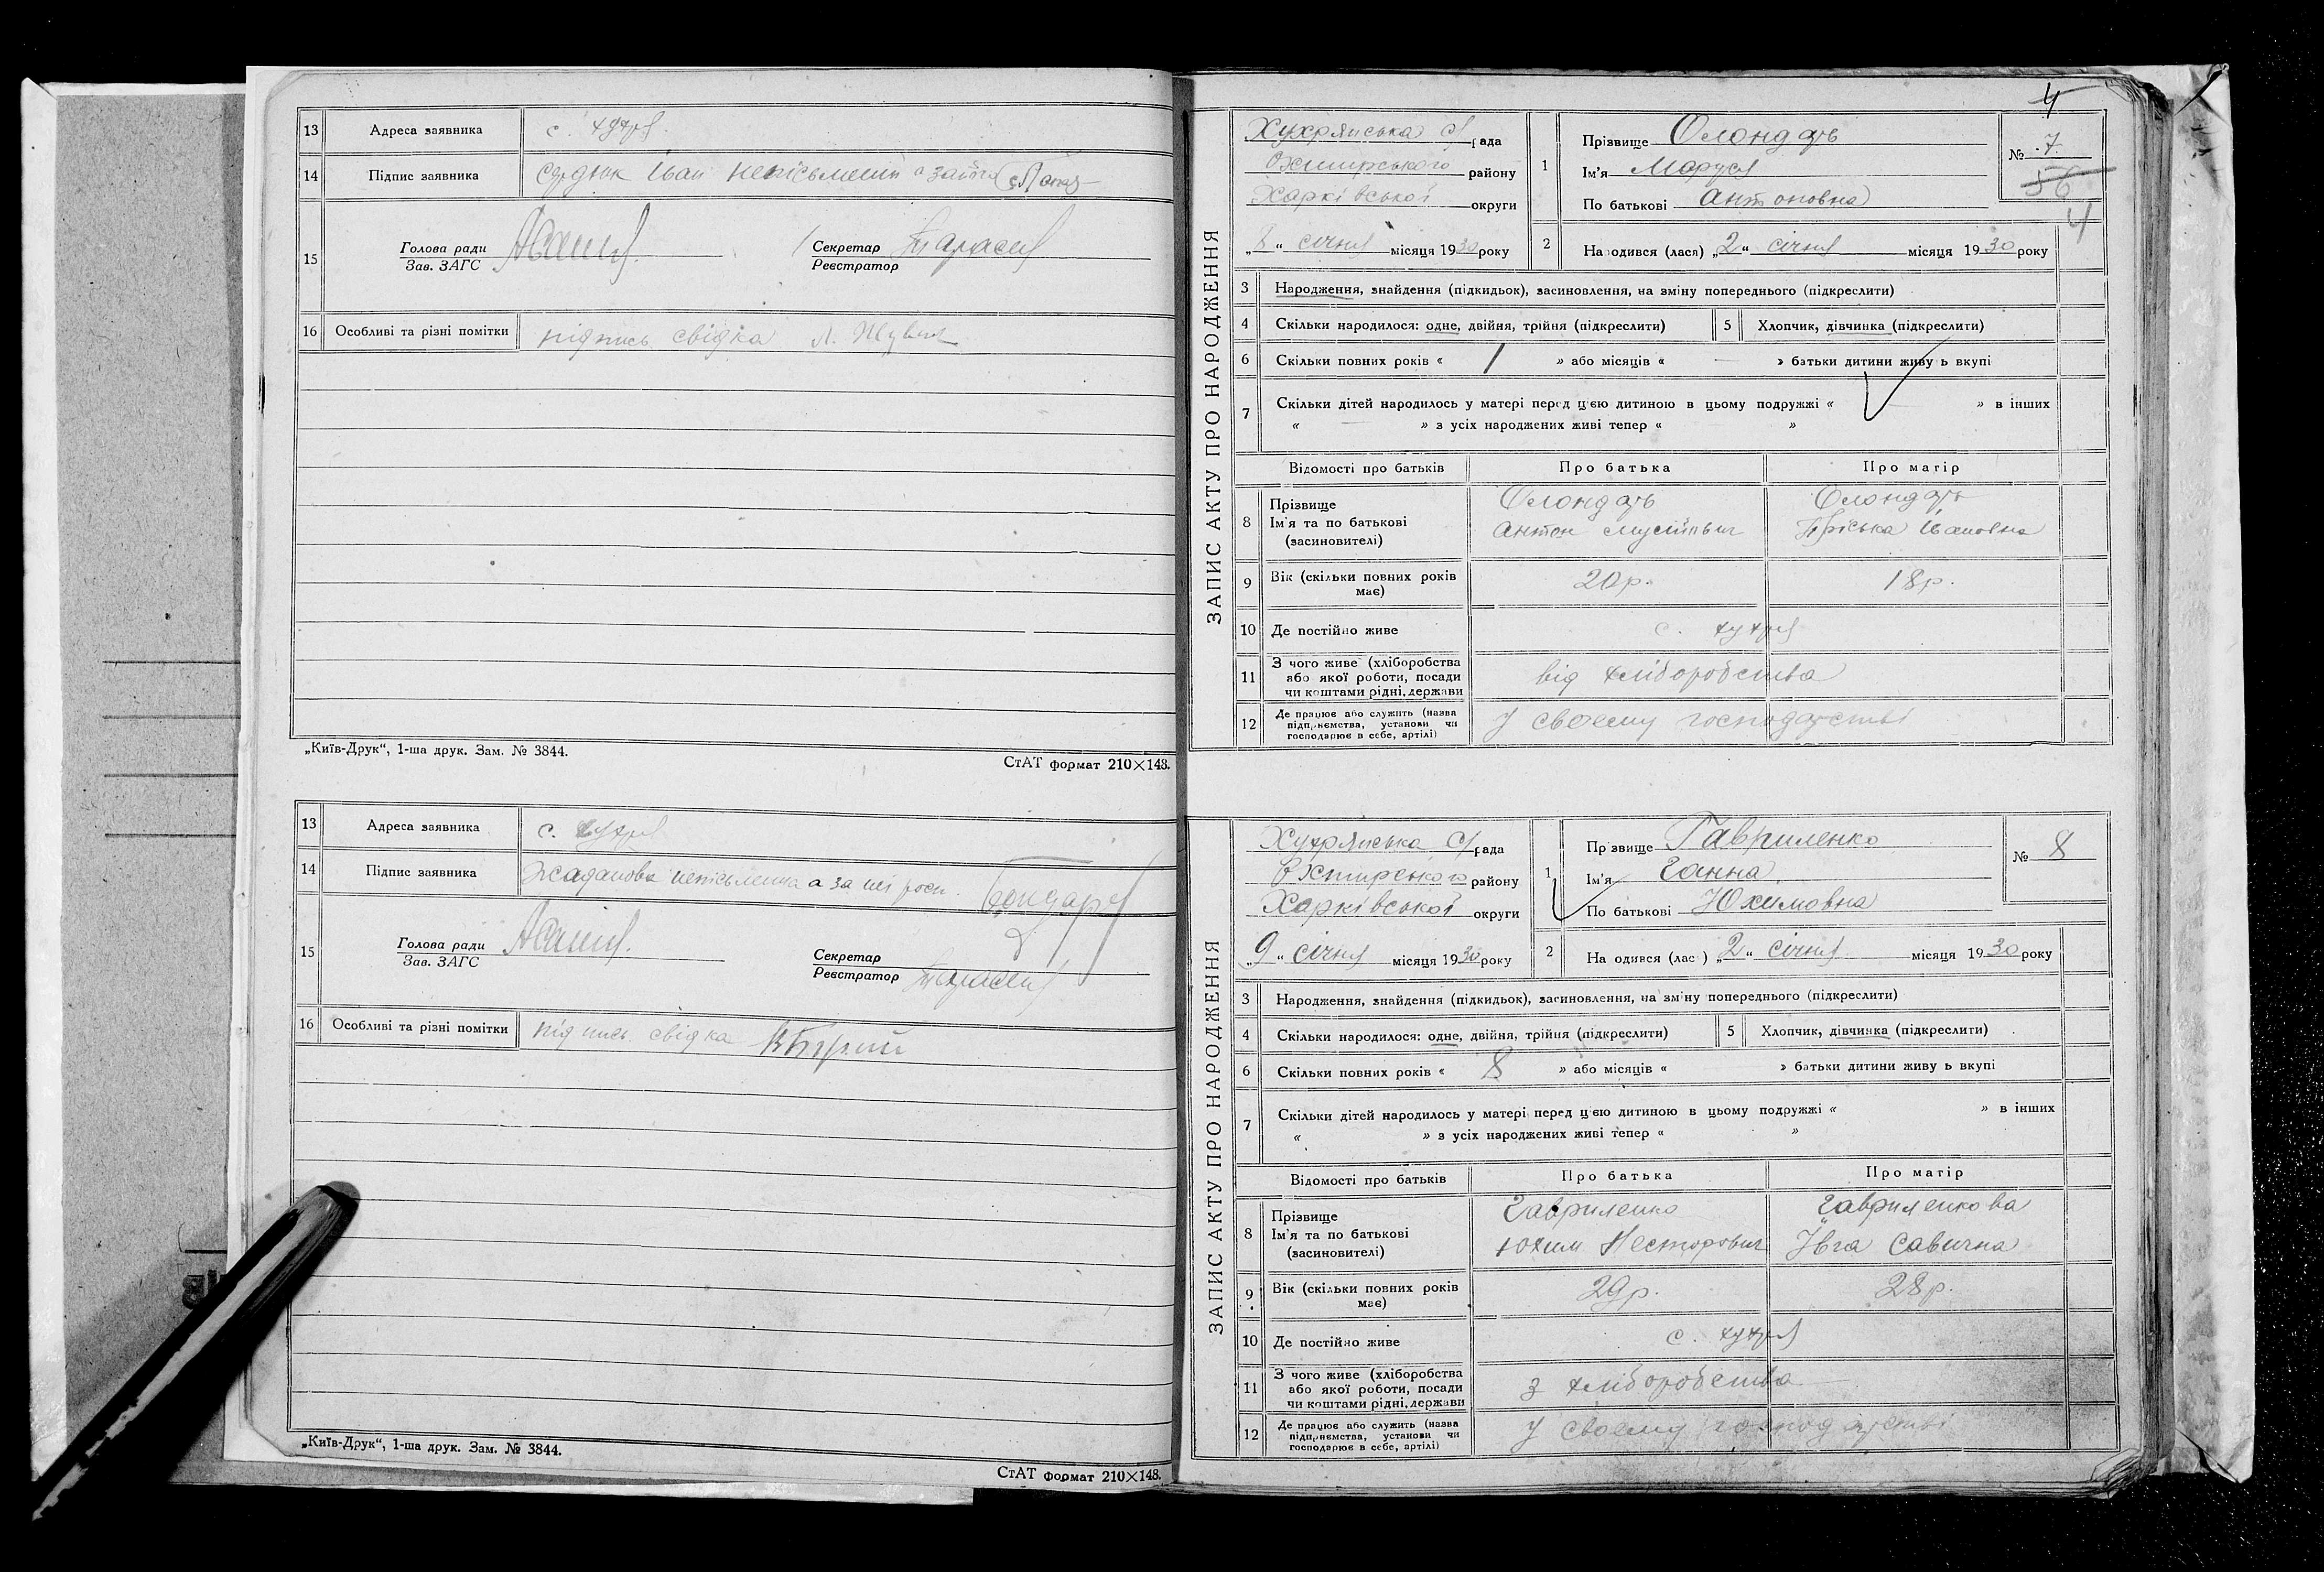 13 Адреса заявника с. Хухря
14 Підпис заявника Іван неписьменний а за його
15 Голова ради Секретар Тарасия
Зав. ЗАГС Реєстратор
16 Особливі та різні помітки підпись свідка Л.
„Київ-Друк“, 1-ша друк. Зам. № 3844.
СтАТ формат 210×148.
13 Адреса заявника с. Хухря
14 Підпис заявника Жаданова неписьменна а за неї росп. Бондарь
15 Голова ради Секретар
Зав. ЗАГС Реєстратор
16 Особливі та різні помітки підпись свідка
„Київ-Друк“, 1-ша друк. Зам. № 3844.
СтАТ формат 210×148.
4
ЗАПИС АКТУ ПРО НАРОДЖЕННЯ
Хухрянська с/рада
Охтирського району
Харківської округи
„8“ січня місяця 1930 року
1 Прізвище Олондарь
Ім'я Маруся
По батькові Антоновна
№ 7
56
4
2 Народився (лася) „2“ січня місяця 1930 року
3 Народження, знайдення (підкидьок), засиновлення, на зміну попереднього (підкреслити)
4 Скільки народилося: одне, двійня, трійня (підкреслити) 5 Хлопчик, дівчинка (підкреслити)
6 Скільки повних років « 1 » або місяців « — » батьки дитини живуть вкупі
7 Скільки дітей народилось у матері перед цією дитиною в цьому подружжі « » в інших
« — » з усіх народжених живі тепер « »
Відомості про батьків Про батька Про матір
8 Прізвище Олондарь Олондарь
Ім'я та по батькові Антон Мусійович Пріська Івановна
(засиновителі)
9 Вік (скільки повних років має) 20 р. 18 р.
10 Де постійно живе с. Хухря
11 З чого живе (хліборобства
або якої роботи, посади від хліборобства
чи коштами рідні, держави
12 Де працює або служить (назва
підприємства, установи чи у своему господарстві
господарює в себе, артілі)
ЗАПИС АКТУ ПРО НАРОДЖЕННЯ
Хухрянська с/рада
Охтирського району
Харківської округи
„9“ січня місяця 1930 року
1 Прізвище Гавриленко
Ім'я Ганна
По батькові Юхимовна
№ 8
2 Народився (лася) „2“ січня місяця 1930 року
3 Народження, знайдення (підкидьок), засиновлення, на зміну попереднього (підкреслити)
4 Скільки народилося: одне, двійня, трійня (підкреслити) 5 Хлопчик, дівчинка (підкреслити)
6 Скільки повних років « 8 » або місяців « » батьки дитини живуть вкупі
7 Скільки дітей народилось у матері перед цією дитиною в цьому подружжі « » в інших
« » з усіх народжених живі тепер « »
Відомості про батьків Про батька Про матір
8 Прізвище Гавриленко Гавриленкова
Ім'я та по батькові Юхим Несторович Ївга Савична
(засиновителі)
9 Вік (скільки повних років має) 29 р. 28 р.
10 Де постійно живе с. Хухря
11 З чого живе (хліборобства
або якої роботи, посади з хліборобства
чи коштами рідні, держави
12 Де працює або служить (назва
підприємства, установи чи у своему господарстві
господарює в себе, артілі)